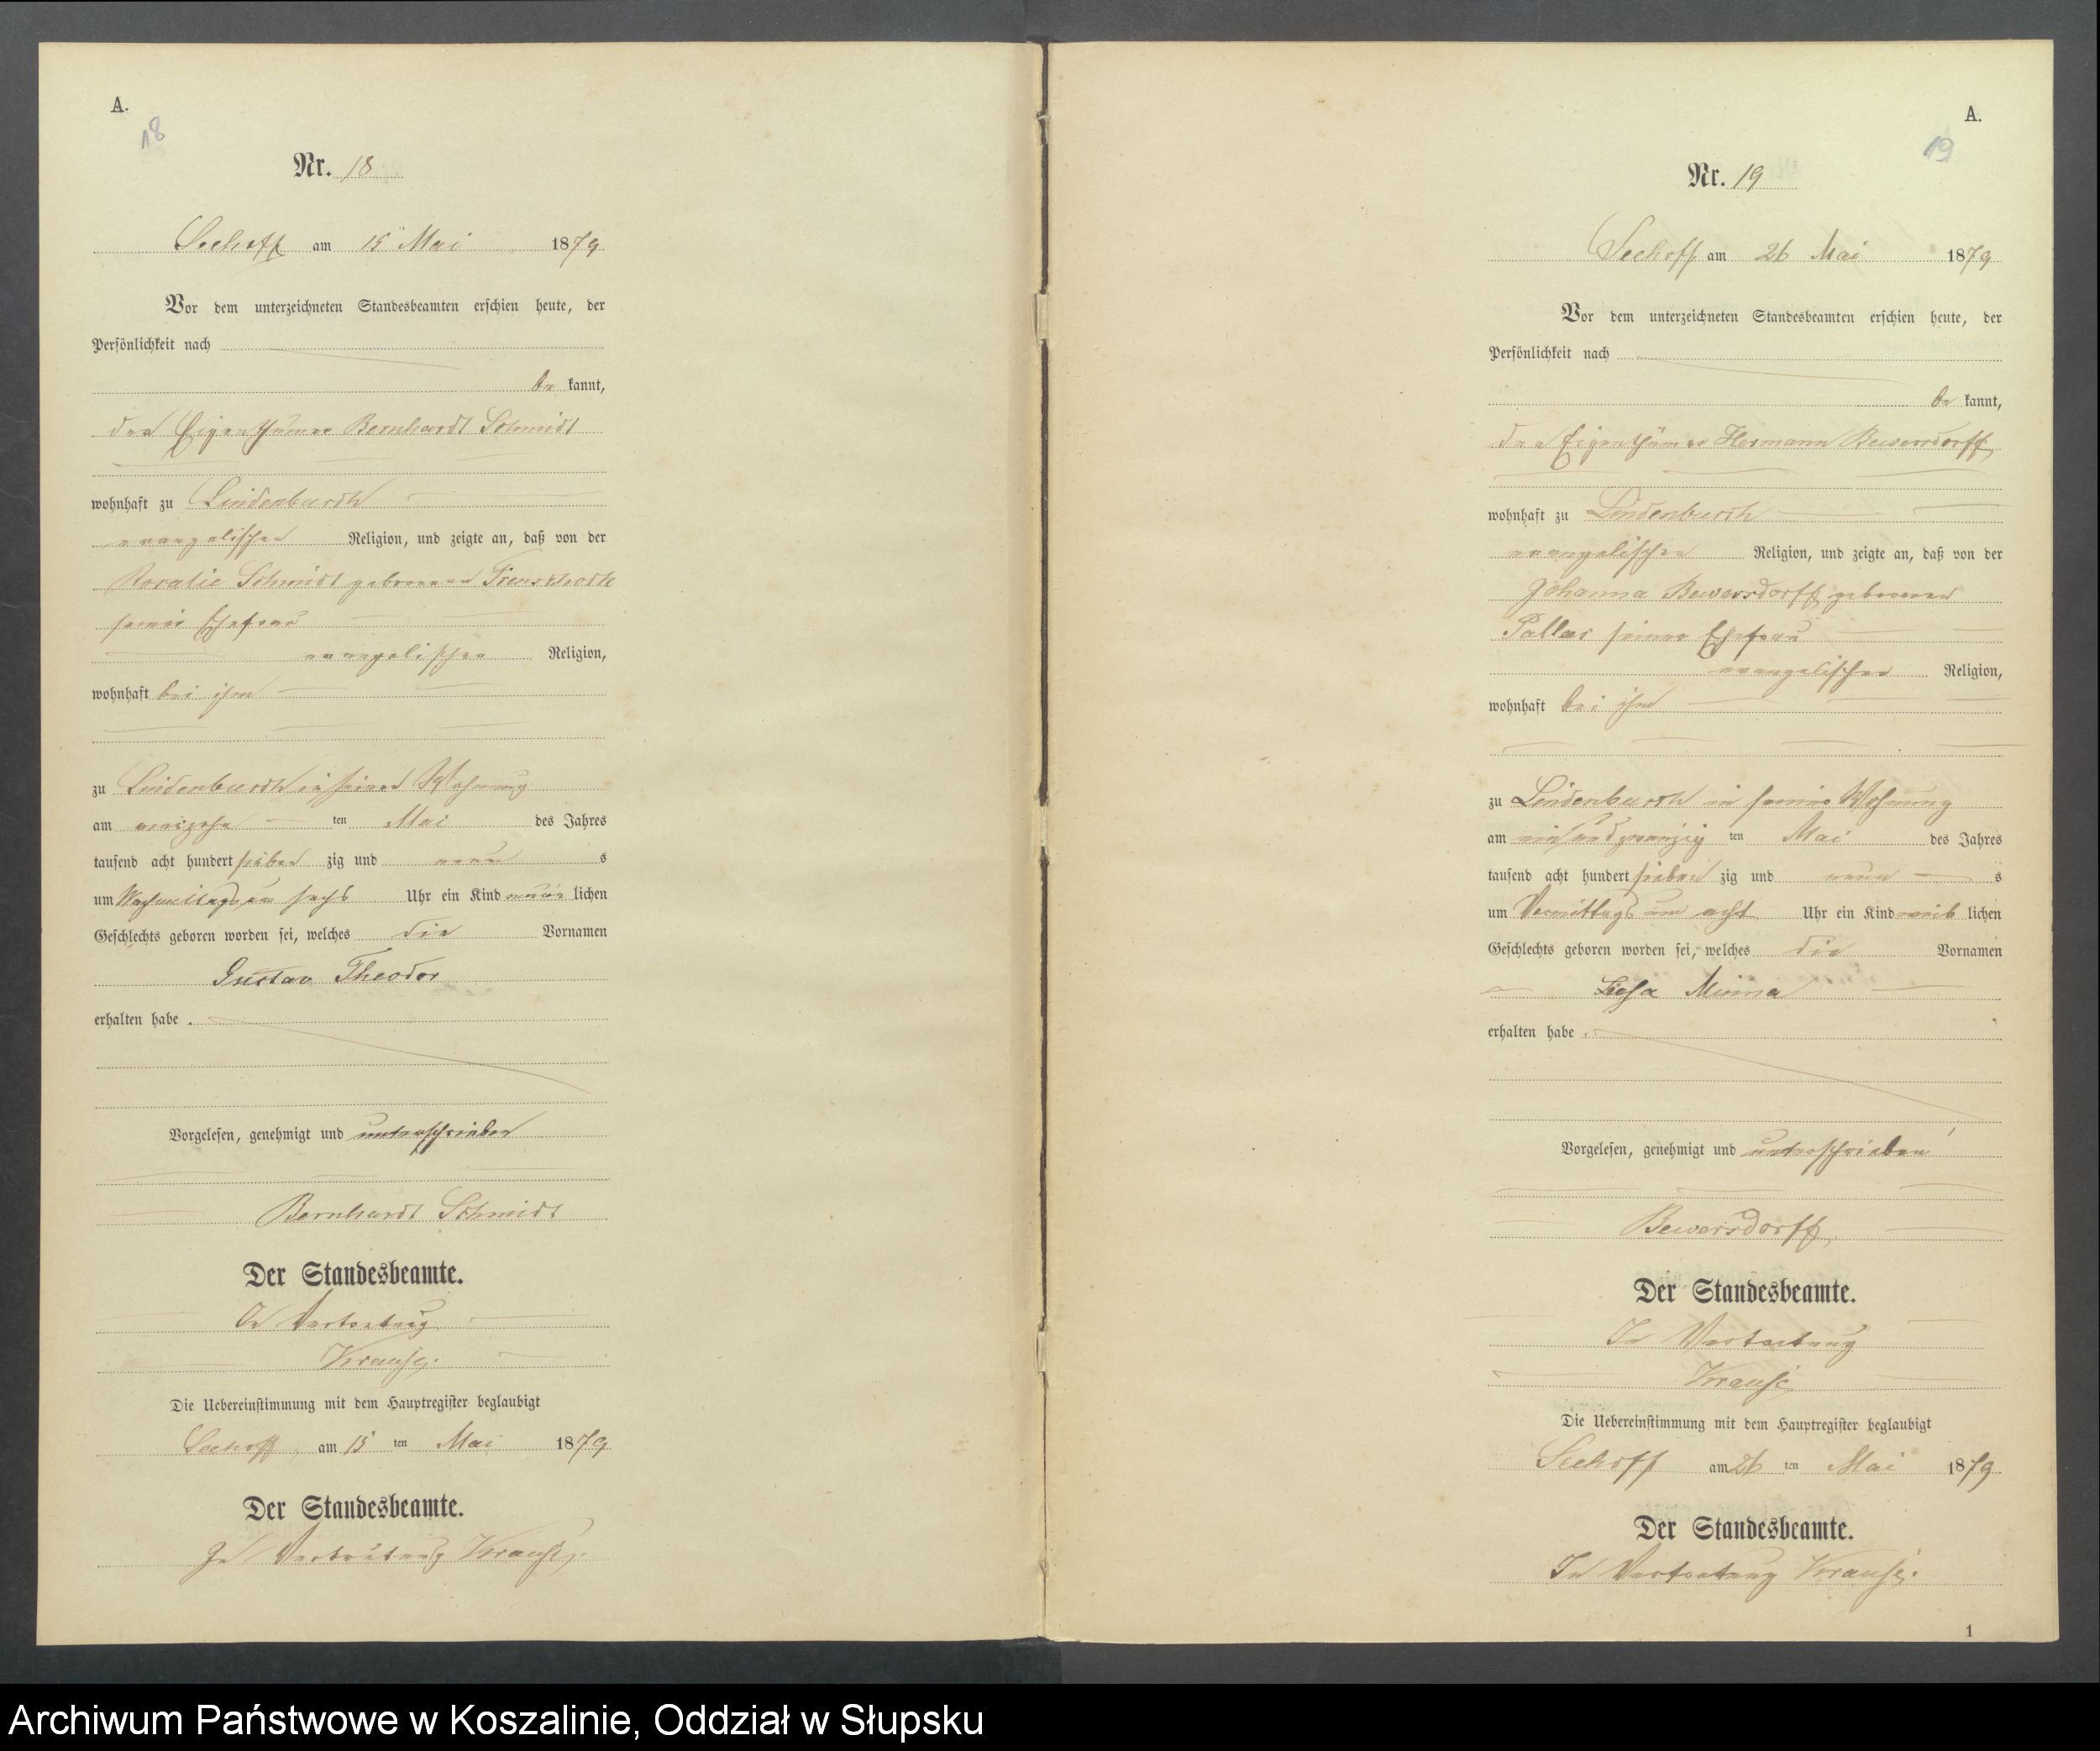 A.
18
Nr. 18
Seehoff am 15 Mai 1879
Vor dem unterzeichneten Standesbeamten erschien heute, der
Persönlichkeit nach
be kannt,
der Eigenthümer Bernhardt Schmidt
wohnhaft zu Lindenbusch
evangelischer Religion, und zeigte an, daß von der
Rosalie Schmidt geborenen
seiner Ehefrau
evangelischer Religion,
wohnhaft bei ihm
zu Lindenbusch in seiner Wohnung
am vierzehn ten Mai des Jahres
tausend acht hundert sieben zig und neun s
um Nachmittags um sechs Uhr ein Kind männ lichen
Geschlechts geboren worden sei, welches die Vornamen
Gustav Theodor
erhalten habe.
Vorgelesen, genehmigt und unterschrieben
Bernhardt Schmidt
Der Standesbeamte.
In Vertretung
Krause.
Die Uebereinstimmung mit dem Hauptregister beglaubigt
Seehoff am 15 ten Mai 1879
Der Standesbeamte.
In Vertretung Krause.
A.
19
Nr. 19
Seehoff am 26 Mai 1879
Vor dem unterzeichneten Standesbeamten erschien heute, der
Persönlichkeit nach
be kannt,
der Eigenthümer Hermann Bewersdorff
wohnhaft zu Lindenbusch
evangelischer Religion, und zeigte an, daß von der
Johanna Bewersdorff geborenen
Pallas seiner Ehefrau
evangelischer Religion,
wohnhaft bei ihm
zu Lindenbusch in seiner Wohnung
am einundzwanzig ten Mai des Jahres
tausend acht hundert sieben zig und neun s
um Vormittags um acht Uhr ein Kind weib lichen
Geschlechts geboren worden sei, welches die Vornamen
Minna
erhalten habe.
Vorgelesen, genehmigt und unterschrieben
Bewersdorff
Der Standesbeamte.
In Vertretung
Krause
Die Uebereinstimmung mit dem Hauptregister beglaubigt
Seehoff am 26 ten Mai 1879
Der Standesbeamte.
In Vertretung Krause.
1
Archiwum Państwowe w Koszalinie, Oddział w Słupsku